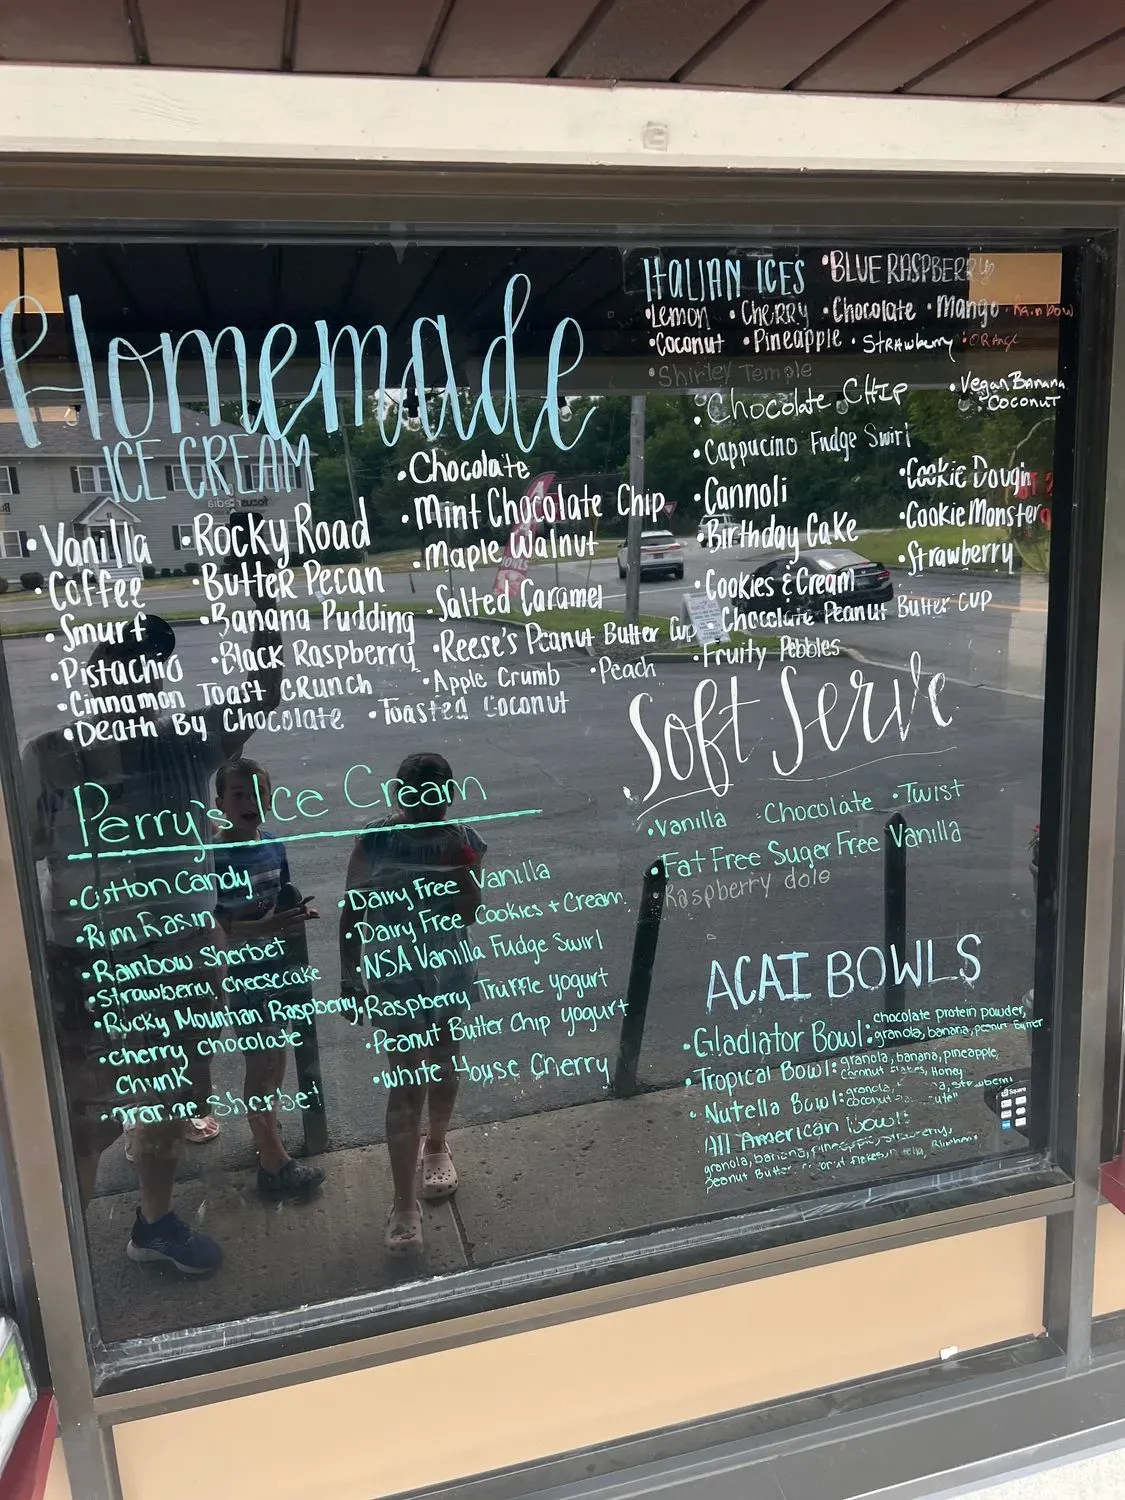 Homemade
ICE CREAM
• Vanilla
• Coffee
• Smurf
• Pistachio
• Cinnamon Toast CRUNCH
• Death By Chocolate • Toasted Coconut
• Rocky Road
• Butter Pecan
• Banana Pudding
• Black Raspberry
• Chocolate
• Mint Chocolate Chip
• Maple Walnut
• Salted Caramel
• Reese's Peanut Butter Cup
• Apple Crumb • Peach
ITALIAN ICES • BLUE RASPBERRY
• Lemon • CHERRY • Chocolate • Mango • Rainbow
• Coconut • Pineapple • Strawberry • ORANGE
• Shirley Temple
• Chocolate CHIP
• Cappucino Fudge Swirl
• Cannoli
• Birthday Cake
• Cookies & Cream
• Chocolate Peanut Butter CUP
• Fruity Pebbles
• Vegan Banana
COCONUT
• Cookie Dough
• Cookie Monster
• Strawberry
Soft Serve
• Vanilla • Chocolate • Twist
• Fat Free Suger Free Vanilla
• Raspberry dole
Perry's Ice Cream
• Cotton Candy
• Rum Rasin
• Rainbow Sherbet
• Strawberry Cheesecake
• Rocky Mountian Raspberry
• cherry chocolate
chunk
• orange Sherbet
• Dairy Free Vanilla
• Dairy Free Cookies + Cream
• NSA Vanilla Fudge Swirl
• Raspberry Truffle yogurt
• Peanut Butter Chip yogurt
• White House Cherry
ACAI BOWLS
• Gladiator Bowl: chocolate protein powder,
granola, banana, peanut butter
• Tropical Bowl: granola, banana, pineapple,
Coconut Flakes, Honey
• Nutella Bowl: granola, strawberri
coconut
All American Bowl:
granola, banana, pineapple, strawberry,
peanut Butter, flakes,
Square